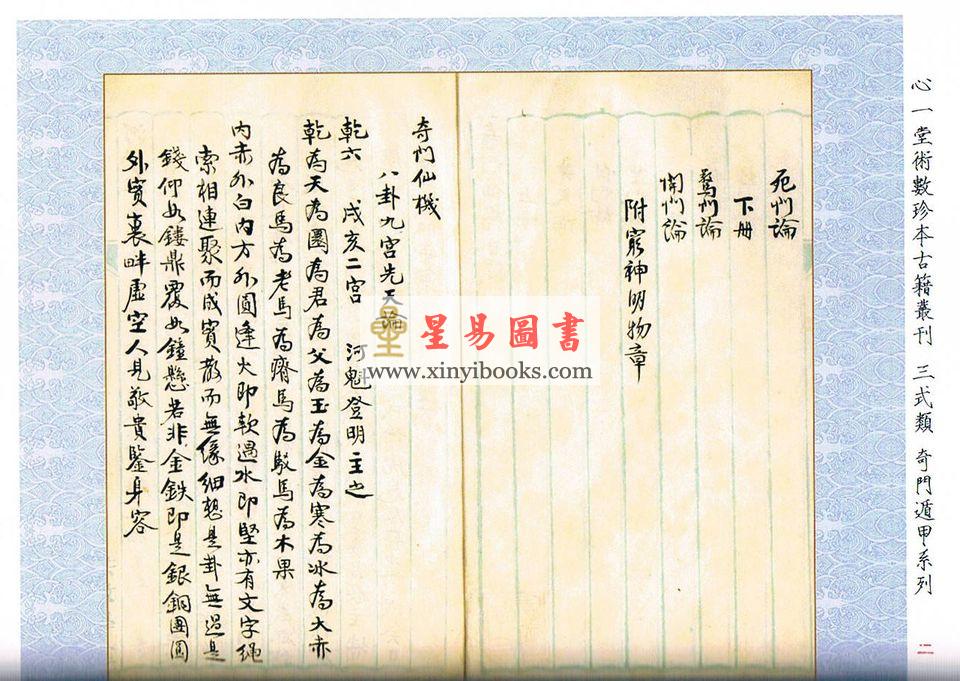 心一堂術數珍本古籍叢刊 三式類 奇門遁甲系列
二
死門論
下册
驚門論
開門論
附窮神明物章
奇門仙機
八卦九宮先天論
乾六 戌亥二宮 河魁登明主之
乾為天為圜為君為父為玉為金為寒為冰為大赤
為良馬為老馬為瘠馬為駁馬為木果
內赤外白內方外圓逢火即軟遇水即堅亦有文字繩
索相連聚而成寶散而無緣細想是卦無過是
錢仰如鏤鼎覆如鐘懸若非金鉄即是銀銅團圓
外實裏畔虛空人見敬貴鑒身容
星易圖書
www.xinyibooks.com